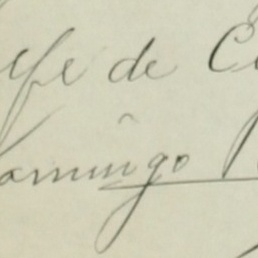 efe de C
omingo